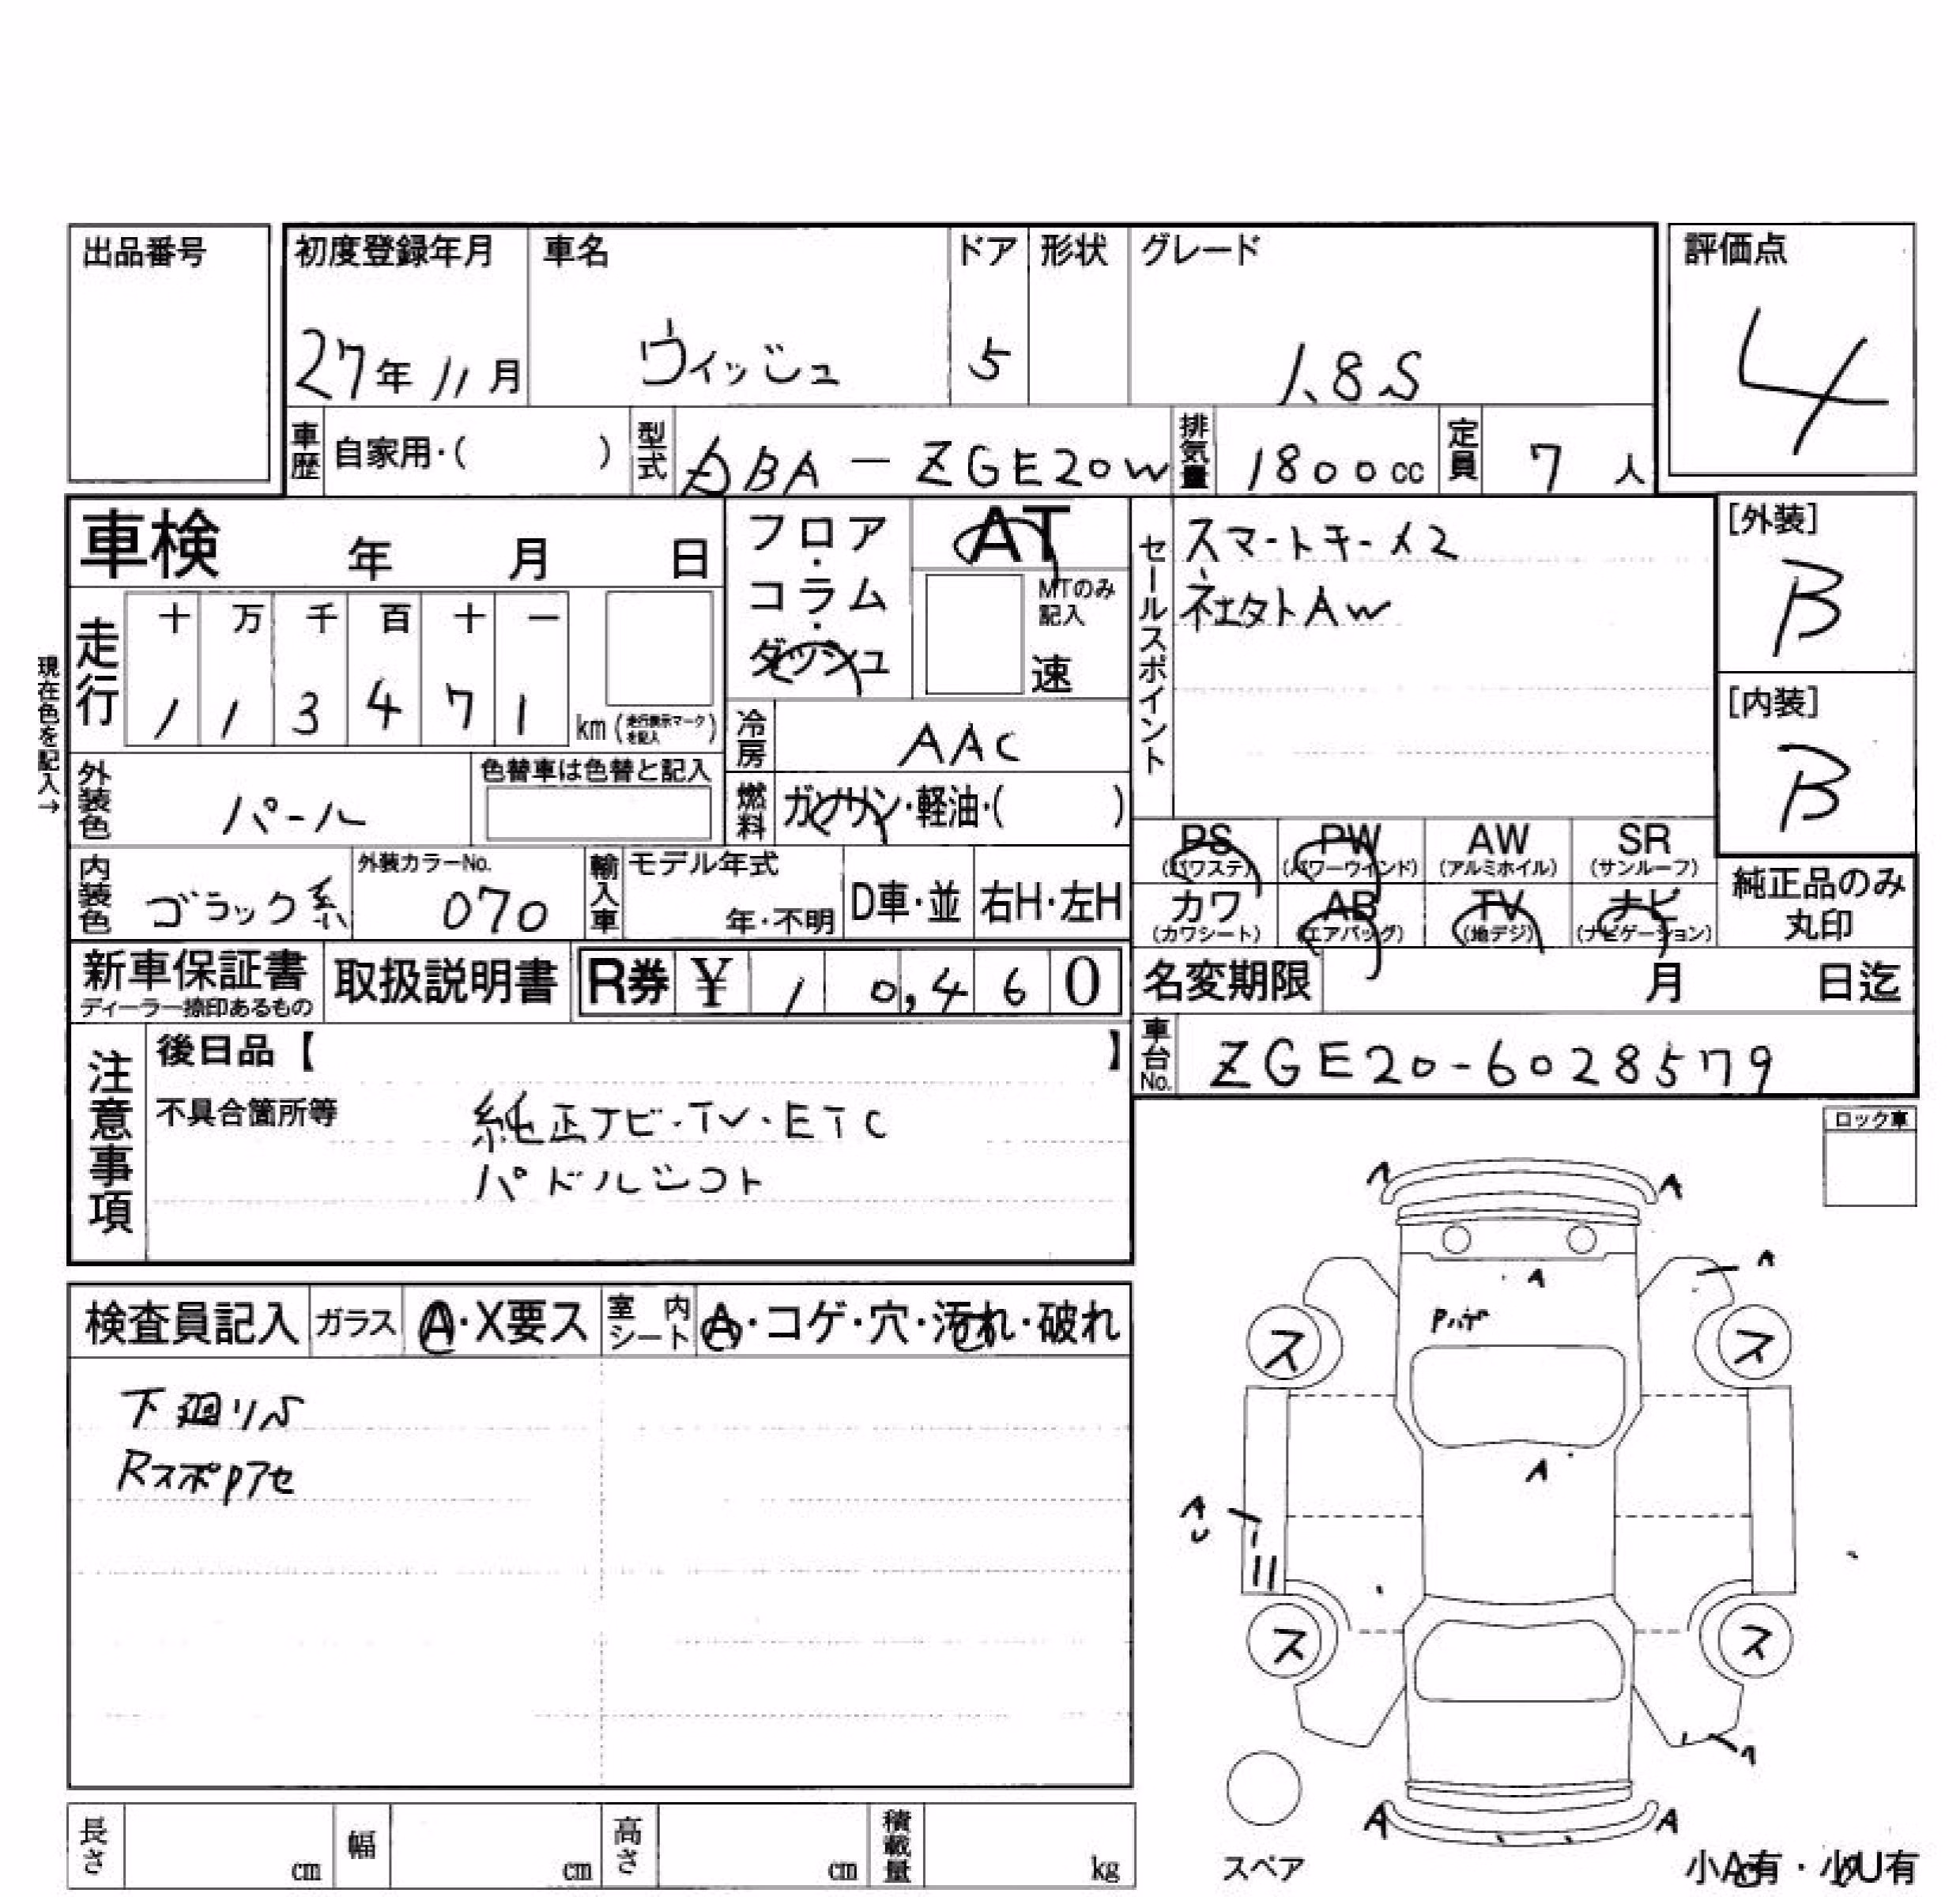 出品番号
初度登録年月 車名 ドア 形状 グレード 評価点
27年 11月 ヴィッシュ 5 1.8S 4
車歴 自家用・( ) 型式 DBA-ZGE20W 排気量 1800cc 定員 7人
車検 年 月 日
フロア・コラム・ダッシュ AT
MTのみ記入
速
セールスポイント
スマートキー×2
社外AW
[外装]
B
[内装]
B
現在色を記入→
走行 十 万 千 百 十 一
1 1 3 4 7 1 km (走行表示マークを記入)
冷房 AAC
外装色 パール 色替車は色替と記入
燃料 ガソリン・軽油・( )
PS (パワステ) PW (パワーウインド) AW (アルミホイル) SR (サンルーフ)
カワ (カワシート) AB (エアバッグ) TV (地デジ) ナビ (ナビゲーション)
純正品のみ丸印
内装色 ブラック系 外装カラーNo. 070 輸入車 モデル年式 年・不明 D車・並 右H・左H
新車保証書 ディーラー捺印あるもの 取扱説明書 R券 ¥ 10,460
名変期限 月 日迄
車台No. ZGE20-6028579
注意事項
後日品【 】
不具合箇所等
純正ナビ・TV・ETC
パドルシフト
ロック車
検査員記入 ガラス A・X要ス 室内シート A・コゲ・穴・汚れ・破れ
下廻りS
RスポPアセ
A A
A A
A
ス ス
A
A
U
ス ス
A
A A
スペア
小A有・小U有
長さ cm 幅 cm 高さ cm 積載量 kg